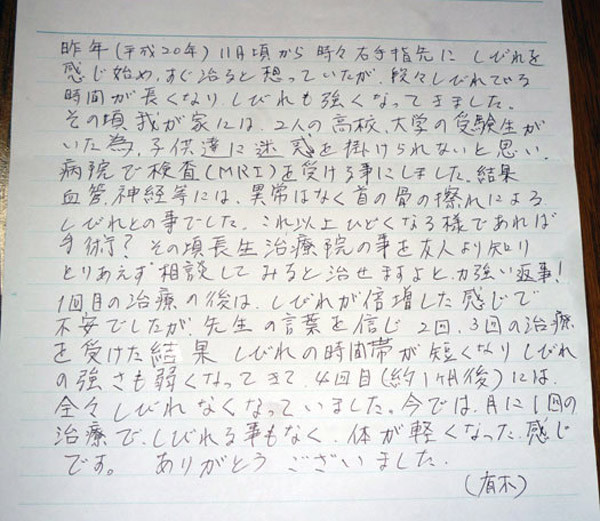 昨年(平成20年)11月頃から時々右手指先にしびれを
感じ始め、すぐ治ると想っていたが、段々しびれている
時間が長くなり、しびれも強くなってきました。
その頃我が家には、2人の高校、大学の受験生が
いた為、子供達に迷惑を掛けられないと思い、
病院で検査(MRI)を受ける事にしました。結果
血管、神経等には、異常はなく首の骨の擦れによる
しびれとの事でした。これ以上ひどくなる様であれば
手術?その頃長生治療院の事を友人より知り
とりあえず相談してみると治せますよと、力強い返事!
1回目の治療の後は、しびれが倍増した感じで
不安でしたが、先生の言葉を信じ2回、3回の治療
を受けた結果しびれの時間帯が短くなりしびれ
の強さも弱くなってきて、4回目(約1ヶ月後)には、
全々しびれなくなっていました。今では、月に1回の
治療で、しびれる事もなく、体が軽くなった感じ
です。 ありがとうございました。
(有木)